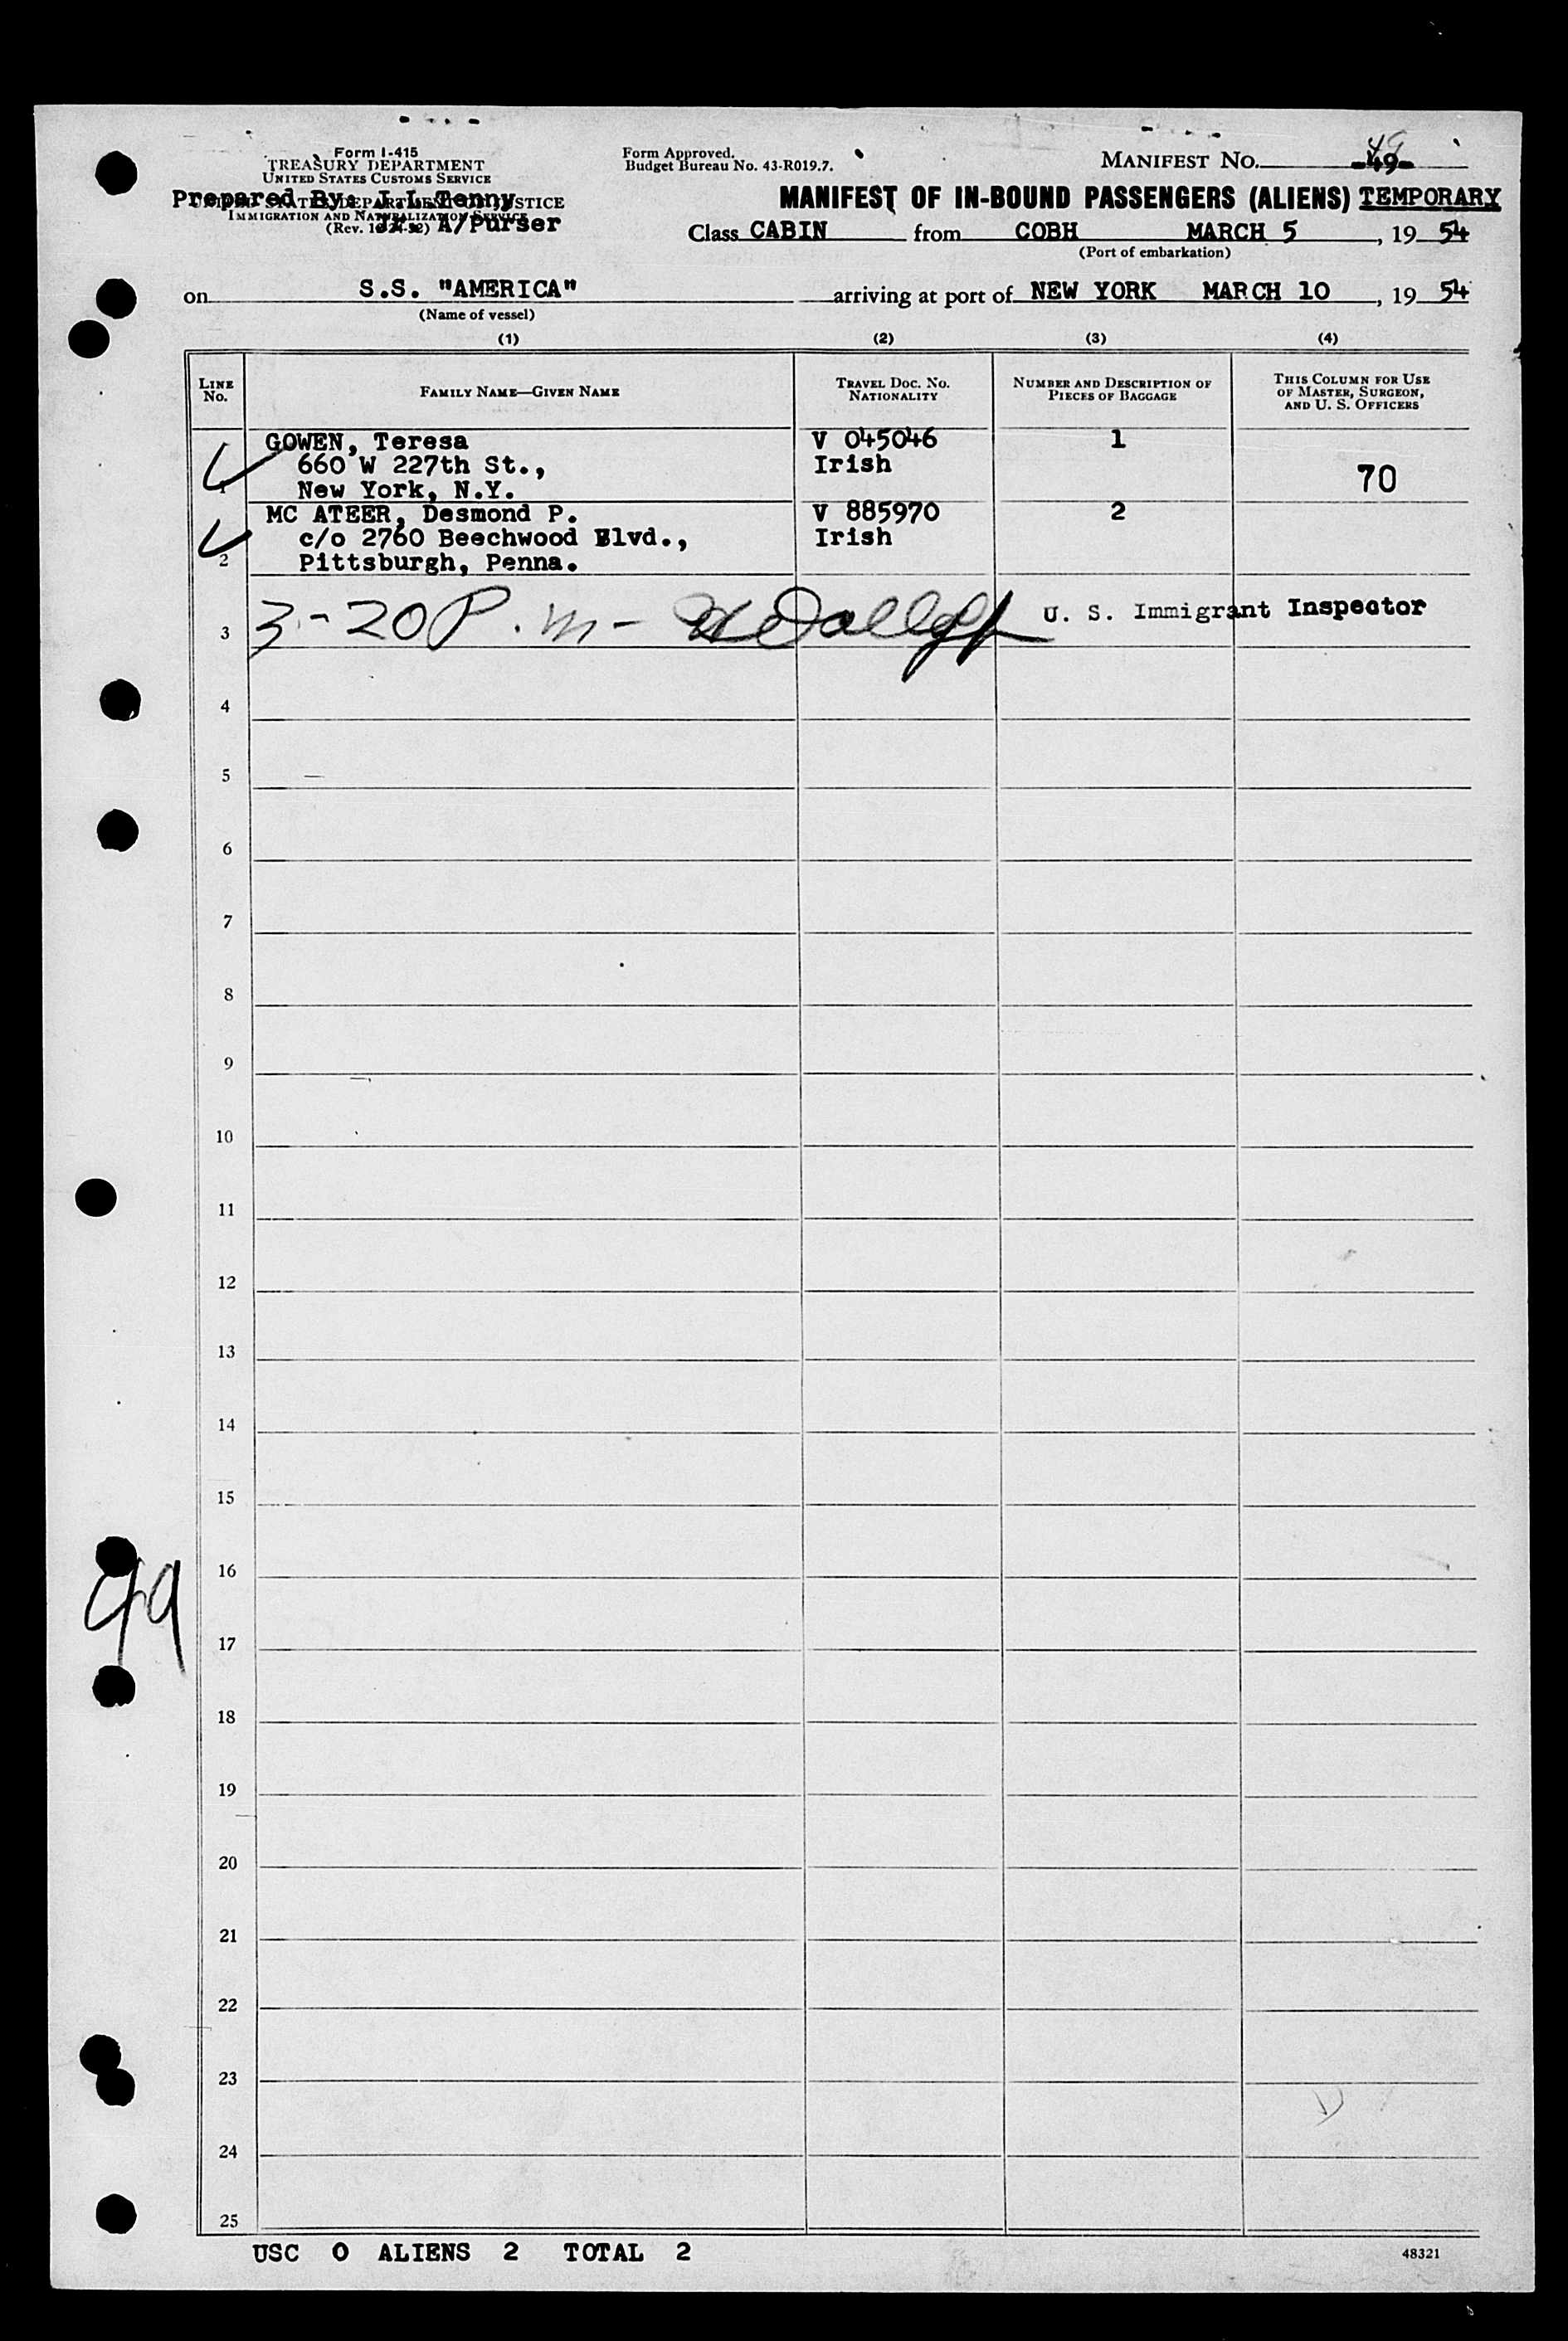 Form I-415
TREASURY DEPARTMENT
UNITED STATES CUSTOMS SERVICE
Prepared By: J.L.Tenny
IMMIGRATION AND NATURALIZATION SERVICE
Jr. A/Purser
Form Approved.
Budget Bureau No. 43-R019.7.
MANIFEST No. 49
MANIFEST OF IN-BOUND PASSENGERS (ALIENS) TEMPORARY
Class CABIN from COBH MARCH 5, 19 54
(Port of embarkation)
on S.S. "AMERICA" arriving at port of NEW YORK MARCH 10, 19 54
(Name of vessel)
(1) (2) (3) (4)
LINE No. FAMILY NAME—GIVEN NAME TRAVEL DOC. No. NATIONALITY NUMBER AND DESCRIPTION OF PIECES OF BAGGAGE THIS COLUMN FOR USE OF MASTER, SURGEON, AND U. S. OFFICERS
GOWEN, Teresa V 045046 1
660 W 227th St., Irish 70
1 New York, N.Y.
MC ATEER, Desmond P. V 885970 2
c/o 2760 Beechwood Blvd., Irish
2 Pittsburgh, Penna.
3 3-20 P.m- U. S. Immigrant Inspector
4
5
6
7
8
9
10
11
12
13
14
15
16
49
17
18
19
20
21
22
23
24
25
USC 0 ALIENS 2 TOTAL 2
48321